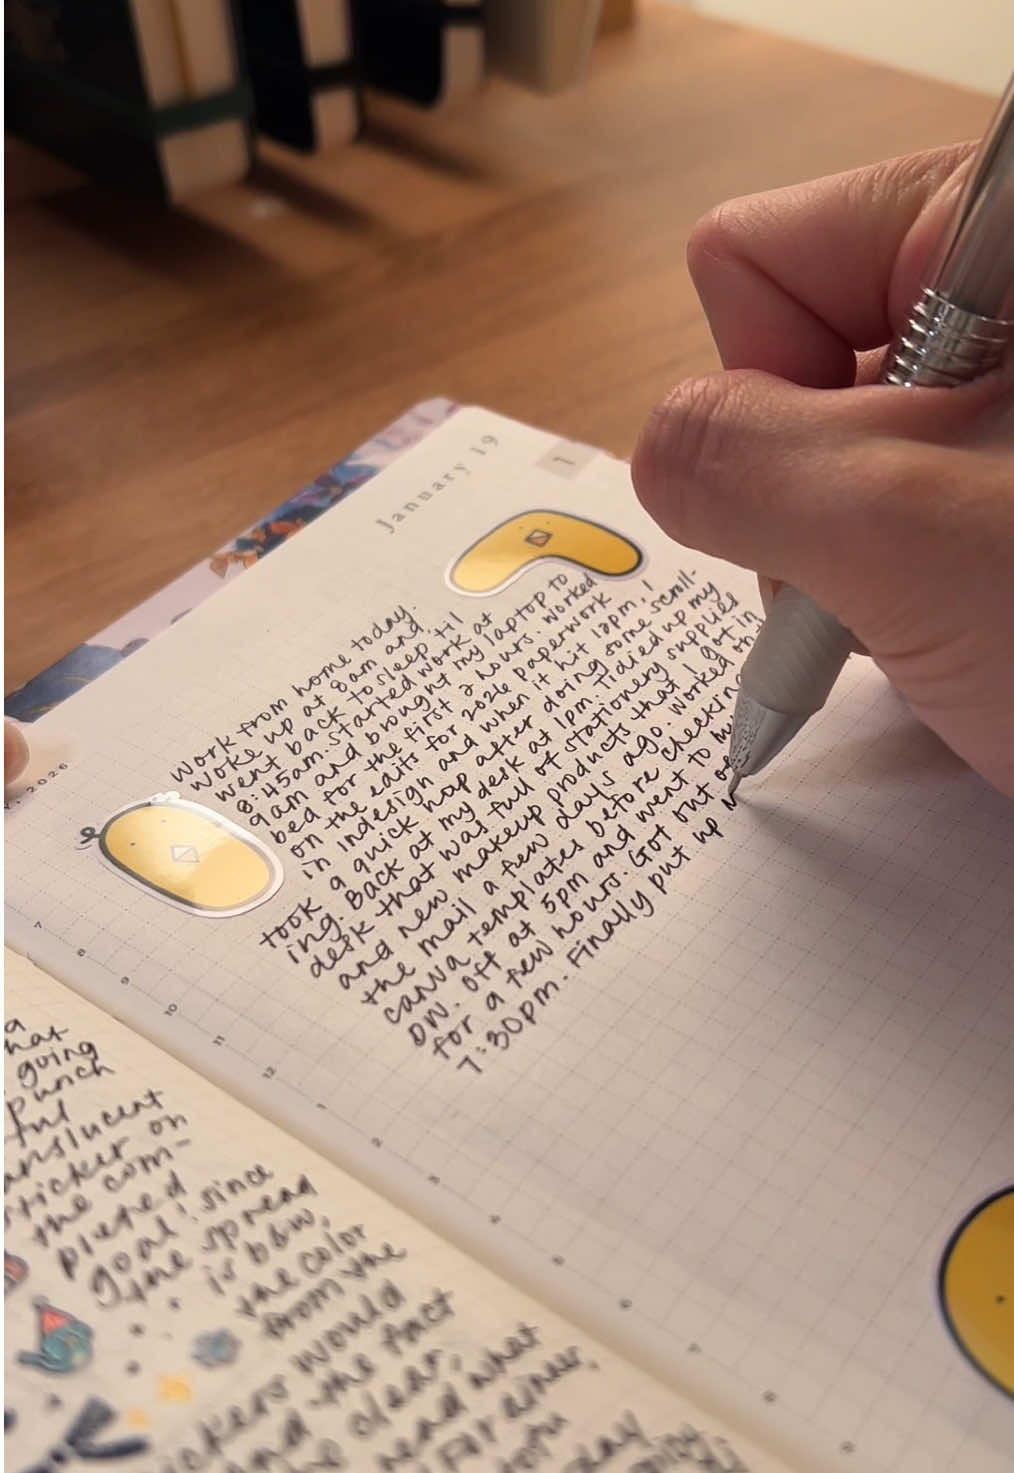 January 19
1
Work from home today.
Woke up at 8am and
went back to sleep til
8:45am. Started work at
9am and brought my laptop to
bed for the first 2 hours. Worked
on the edits for 2026 paperwork
in indesign and when it hit 12pm, I
took a quick nap after doing some scroll-
ing. Back at my desk at 1pm. Tidied up my
desk that was full of stationery supplies
and new makeup products that I got in
the mail a few days ago. Worked on
canva templates before checking
on. Off at 5pm and went to
for a few hours. Got out of
7:30pm. Finally put up
2026
7
8
9
10
11
12
1
2
3
4
5
6
7
8
9
a
hat
going
punch
ful
anslucent
sticker on
the com-
pleted
goal! Since
the spread
is b&w,
the color
from the
ckers would
and the fact
clear,
read what